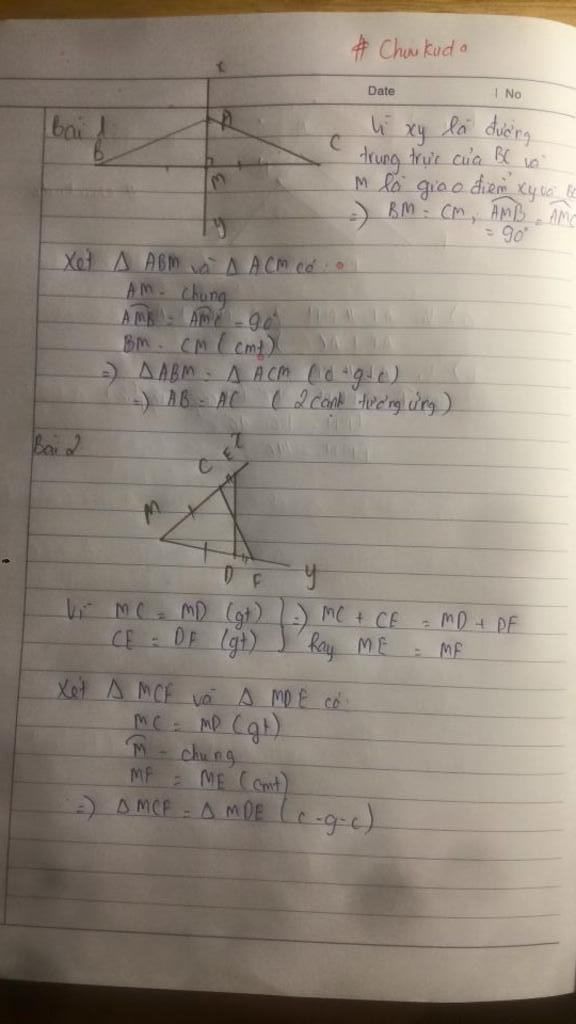 # Chuukudo
Date | No
x
Bài 1
A
B
C
M
y
Vì xy là đường
trung trực của BC và
M là giao điểm xy và BC
=> BM = CM, AMB = AMC
= 90°
Xét Δ ABM và Δ ACM có:
AM - chung
AMB = AMC = 90°
BM = CM (cmt)
=> ΔABM = Δ ACM (c-g-c)
=> AB = AC (2 cạnh tương ứng)
Bài 2
x
C E
M
D F y
Vì MC = MD (gt) } => MC + CE = MD + DF
CE = DF (gt) } hay ME = MF
Xét Δ MCF và Δ MDE có:
MC = MD (gt)
M - chung
MF = ME (cmt)
=> Δ MCF = Δ MDE (c-g-c)